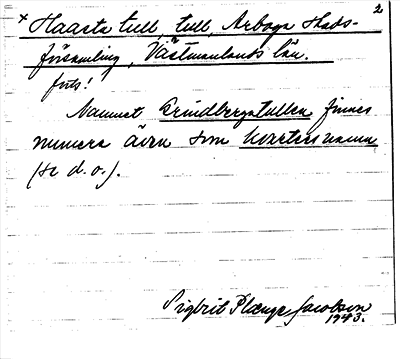 2
x Haasta tull, tull, Arboga stads-
församling, Västmanlands län.
forts!
Namnet Grindbergstullen finnes
numera även som kvartersnamn
(se d.o.).
Sigbrit Plænge Jacobson
1943.